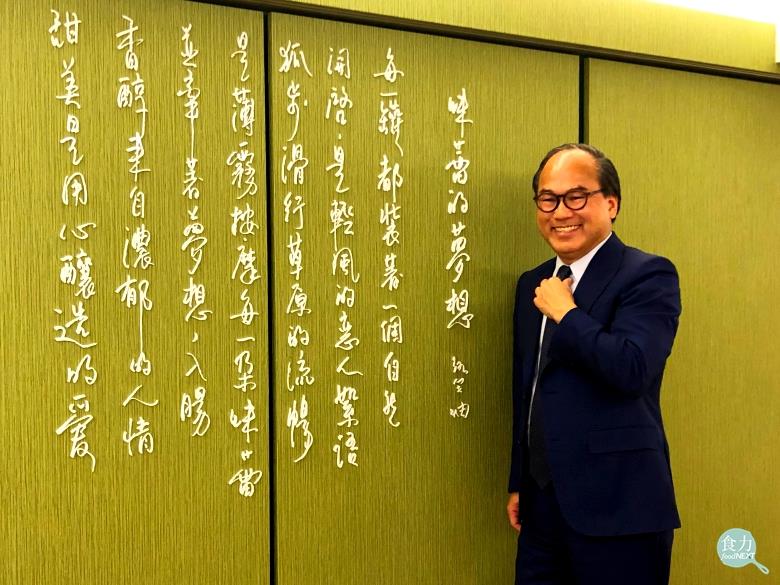 味蕾的夢想
每一罐都裝著一個自然
開啓，是輕風的戀人絮語
狐步滑行草原的流暢
是薄霧按摩每一朵味蕾
並牽著夢想，入腸
香醇來自濃郁的人情
甜美是用心釀造的愛
食力
foodNEXT